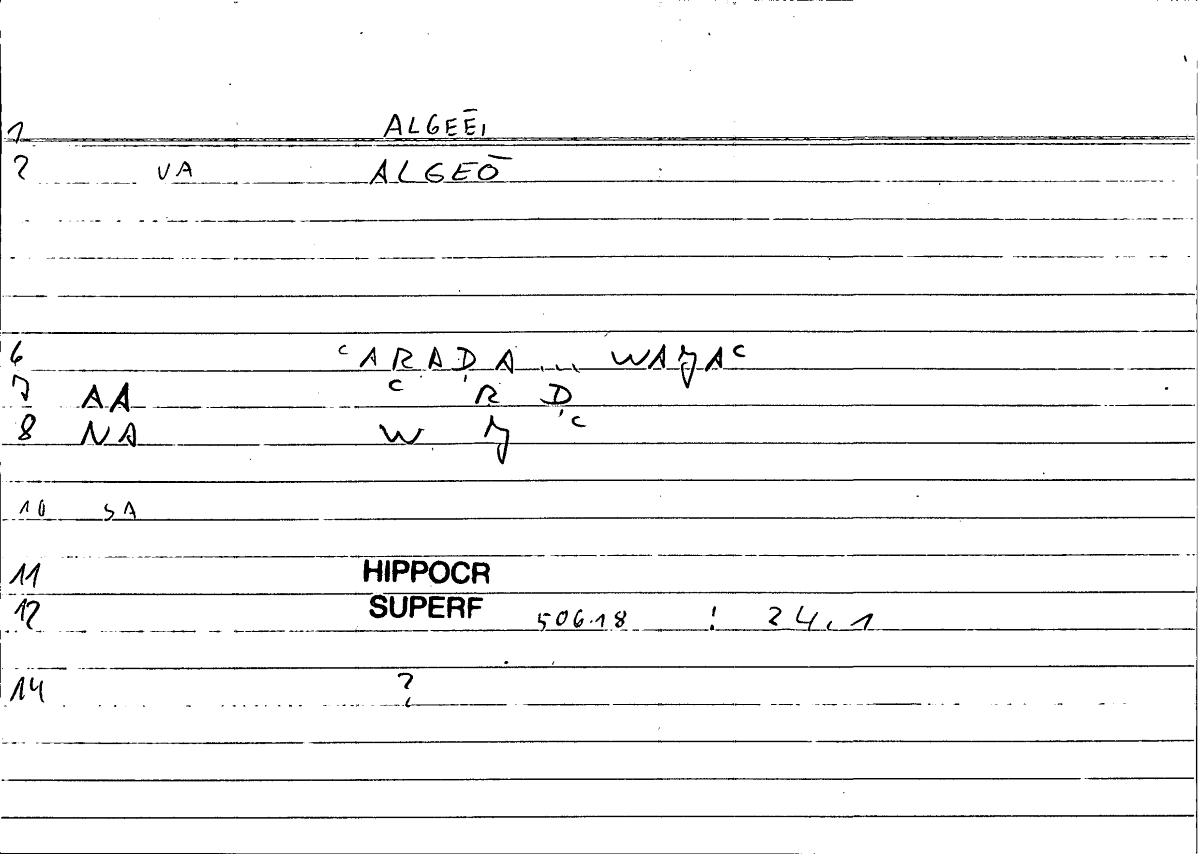 1 ALGEĒI
2 VA ALGEŌ
6 ᶜARAḌA ... WAǦAᶜ
7 AA ᶜ R Ḍ
8 NA W Ǧ ᶜ
10 SA
11 HIPPOCR
12 SUPERF 506.18 ! 24.1
14 ?